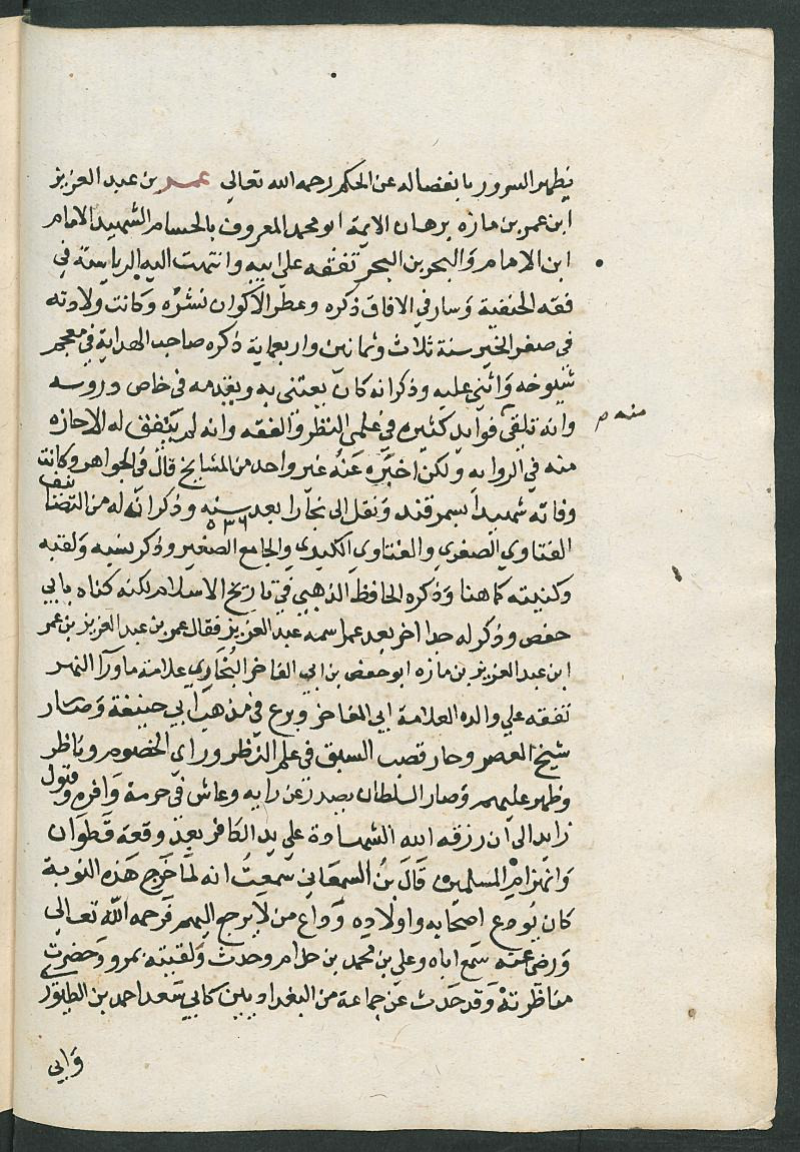 يظهر السرور بانفصاله عن الحكم رحمه الله تعالي عمر بن عبد العزيز
ابن عمر بن مازه برهان الايمة ابو محمد المعروف بالحسام الشهيد الامام
ابن الامام والبحر بن البحر تفقه علي ابيه وانتهت اليه الرياسة في
فقه الحنفية وسار في الافاق ذكره وعطر الاكوان نشره وكانت ولادته
في صفر الخير سنة ثلاث وثمانين واربعماية ذكره صاحب الهداية في معجم
شيوخه واثني عليه وذكر انه كان يعتني به ويقدمه في خاص دروسه
وانه تلقي فوايد كثيره في علمي النظر والفقه وانه لم يتفق له الاجازه
منه م
منه في الروايه ولكن اخبره عنه غير واحد من المشايخ قال في الجواهر وكانت
وفاته شهيدا بسمرقند ونقل الي بخارا بعد سنه ٥٣٦ وذكر انه له من التصانيف
الفتاوي الصغري والفتاوي الكبري والجامع الصغير وذكر نسبه ولقبه
وكنيته كما هنا وذكره الحافظ الذهبي في تاريخ الاسلام لكنه كناه بابي
حفص وذكر له جدا اخر بعد عمر اسمه عبد العزيز فقال عمر بن عبد العزيز بن عمر
ابن عبد العزيز بن مازه ابو حفص بن ابي المفاخر البخاري علامة ماورآ النهر
تفقه علي والده العلامة ابي المفاخر وبرع في مذهب ابي حنيفة وصار
شيخ العصر وحاز قصب السبق في علم النظر وراي الخصوم وناظر
وظهر عليهم وصار السلطان يصدر عن رايه وعاش في حرمة وافره وقبول
زايد الي ان رزقه الله الشهادة علي يد الكافر بعد وقعة قطوان
وانهزام المسلمين قال بن السمعاني سمعت انه لما خرج هذه النوبة
كان يودع اصحابه واولاده وداع من لا يرجع اليهم فرحمه الله تعالي
ورضي عنه سمع اباه وعلي بن محمد بن خدام وحدث ولقيته بمرو وحضرت
مناظرته وقد حدث عن جماعة من البغداديين كابي سعد احمد بن الطيوري
وابي